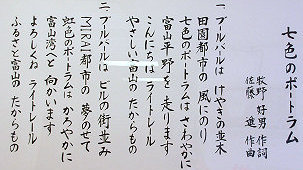 七色のポートラム
牧野 好男 作詞
佐藤 進 作曲
一 ブールバールは けやきの並木
田園都市の 風にのり
七色のポートラムは さわやかに
富山平野を 走ります
こんにちは ライトレール
やさしい富山の たからもの
二 ブールバールは ビルの街並み
MIRAI都市の 夢のせて
虹色のポートラムは かろやかに
富山湾へと 向かいます
よろしくね ライトレール
ふるさと富山の たからもの